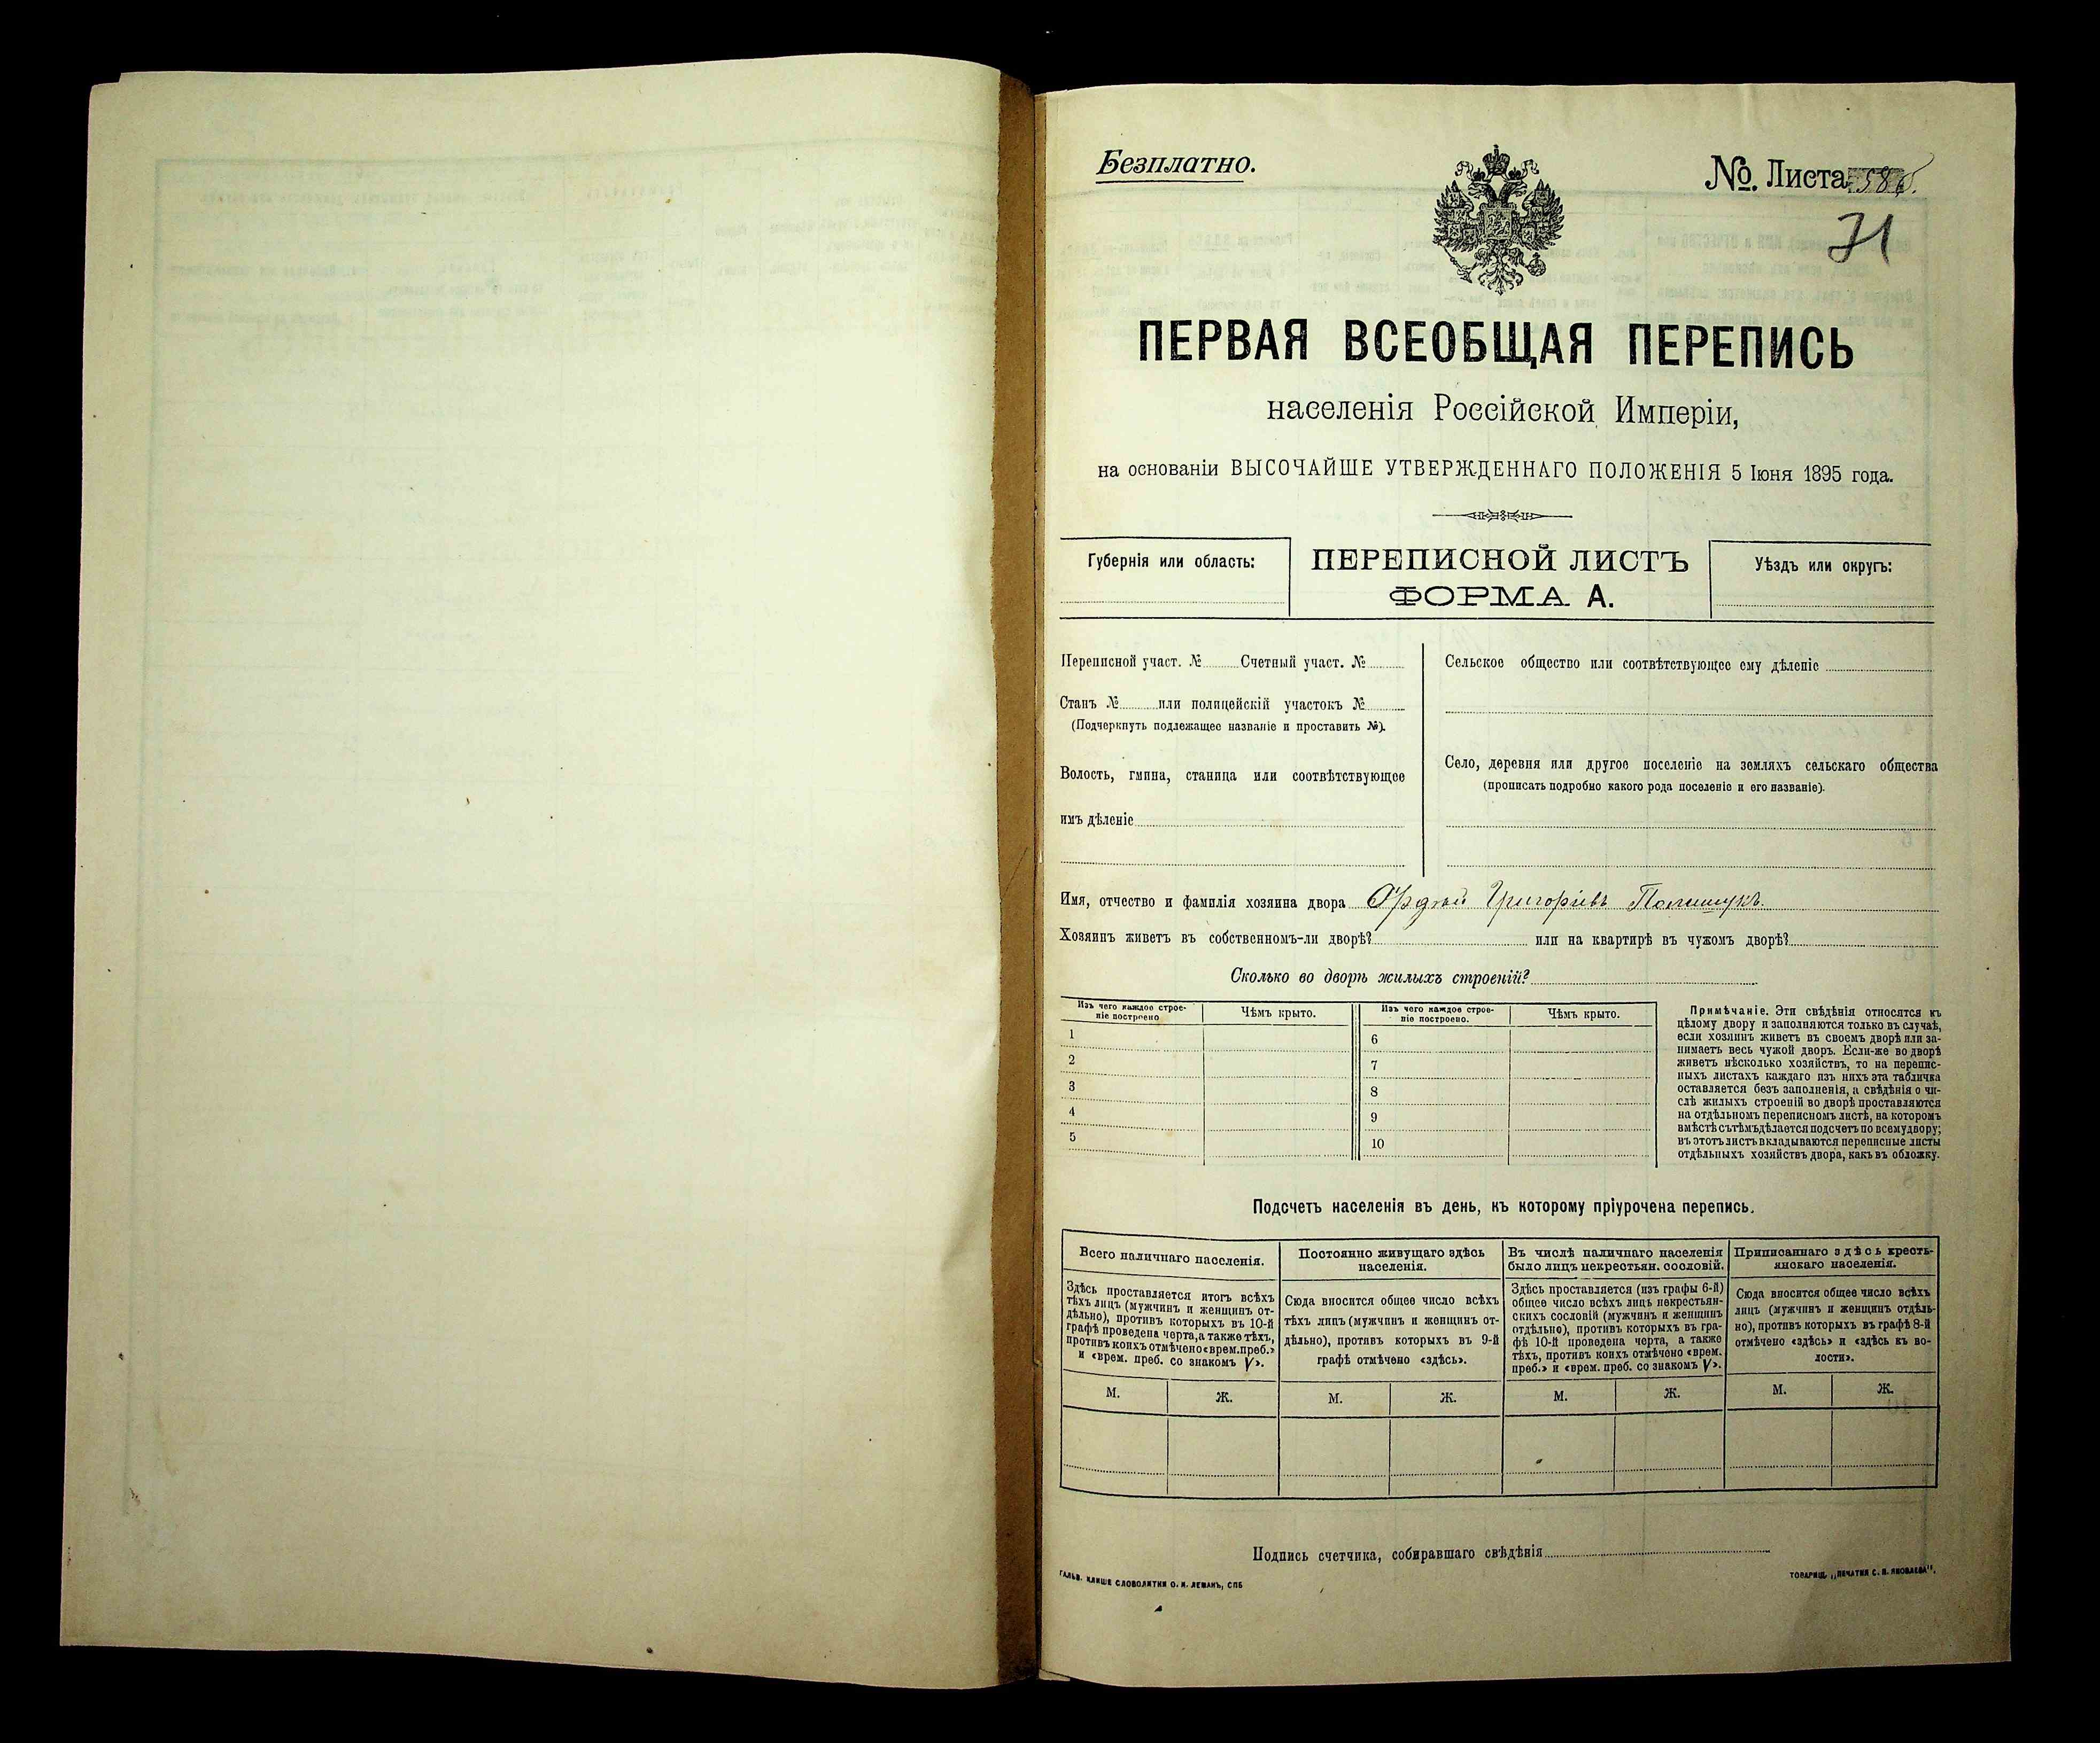 Безплатно.
№. Листа
71
ПЕРВАЯ ВСЕОБЩАЯ ПЕРЕПИСЬ
населенія Россійской Имперіи,
на основаніи ВЫСОЧАЙШЕ УТВЕРЖДЕННАГО ПОЛОЖЕНІЯ 5 Іюня 1895 года.
Губернія или область:
ПЕРЕПИСНОЙ ЛИСТЪ
ФОРМА А.
Уѣздъ или округъ:
Переписной участ. № Счетный участ. №
Станъ № или полицейскій участокъ №
(Подчеркнуть подлежащее названіе и проставить №).
Волость, гмина, станица или соотвѣтствующее
имъ дѣленіе
Сельское общество или соотвѣтствующее ему дѣленіе
Село, деревня или другое поселеніе на земляхъ сельскаго общества
(прописать подробно какого рода поселеніе и его названіе).
Имя, отчество и фамилія хозяина двора Григорьевъ Полищукъ.
Хозяинъ живетъ въ собственномъ-ли дворѣ? или на квартирѣ въ чужомъ дворѣ?
Сколько во дворѣ жилыхъ строеній?
Изъ чего каждое строе-
ніе построено
Чѣмъ крыто.
Изъ чего каждое строе-
ніе построено.
Чѣмъ крыто.
1
2
3
4
5
6
7
8
9
10
Примѣчаніе. Эти свѣдѣнія относятся къ
цѣлому двору и заполняются только въ случаѣ,
если хозяинъ живетъ въ своемъ дворѣ или за-
нимаетъ весь чужой дворъ. Если-же во дворѣ
живетъ нѣсколько хозяйствъ, то на перепис-
ныхъ листахъ каждаго изъ нихъ эта табличка
оставляется безъ заполненія, а свѣдѣнія о чи-
слѣ жилыхъ строеній во дворѣ проставляются
на отдѣльномъ переписномъ листѣ, на которомъ
вмѣстѣ съ тѣмъ дѣлается подсчетъ по всему двору;
въ этотъ листъ вкладываются переписные листы
отдѣльныхъ хозяйствъ двора, какъ въ обложку.
Подсчетъ населенія въ день, къ которому пріурочена перепись.
Всего наличнаго населенія.
Здѣсь проставляется итогъ всѣхъ
тѣхъ лицъ (мужчинъ и женщинъ от-
дѣльно), противъ которыхъ въ 10-й
графѣ проведена черта, а также тѣхъ,
противъ коихъ отмѣчено «врем. преб.»
и «врем. преб. со знакомъ V».
Постоянно живущаго здѣсь
населенія.
Сюда вносится общее число всѣхъ
тѣхъ лицъ (мужчинъ и женщинъ от-
дѣльно), противъ которыхъ въ 9-й
графѣ отмѣчено «здѣсь».
Въ числѣ наличнаго населенія
было лицъ некрестьян. сословій.
Здѣсь проставляется (изъ графы 6-й)
общее число всѣхъ лицъ некрестьян-
скихъ сословій (мужчинъ и женщинъ
отдѣльно), противъ которыхъ въ гра-
фѣ 10-й проведена черта, а также
тѣхъ, противъ коихъ отмѣчено «врем.
преб.» и «врем. преб. со знакомъ V».
Приписаннаго здѣсь кресть-
янскаго населенія.
Сюда вносится общее число всѣхъ
лицъ (мужчинъ и женщинъ отдѣль-
но), противъ которыхъ въ графѣ 8-й
отмѣчено «здѣсь» и «здѣсь къ во-
лости».
М. Ж. М. Ж. М. Ж. М. Ж.
Подпись счетчика, собиравшаго свѣдѣнія
ГАЛЬВ. КЛИШЕ СЛОВОЛИТНИ О. И. ЛЕМАНЪ, СПБ
ТОВАРИЩ. „ПЕЧАТНЯ С. П. ЯКОВЛЕВА".